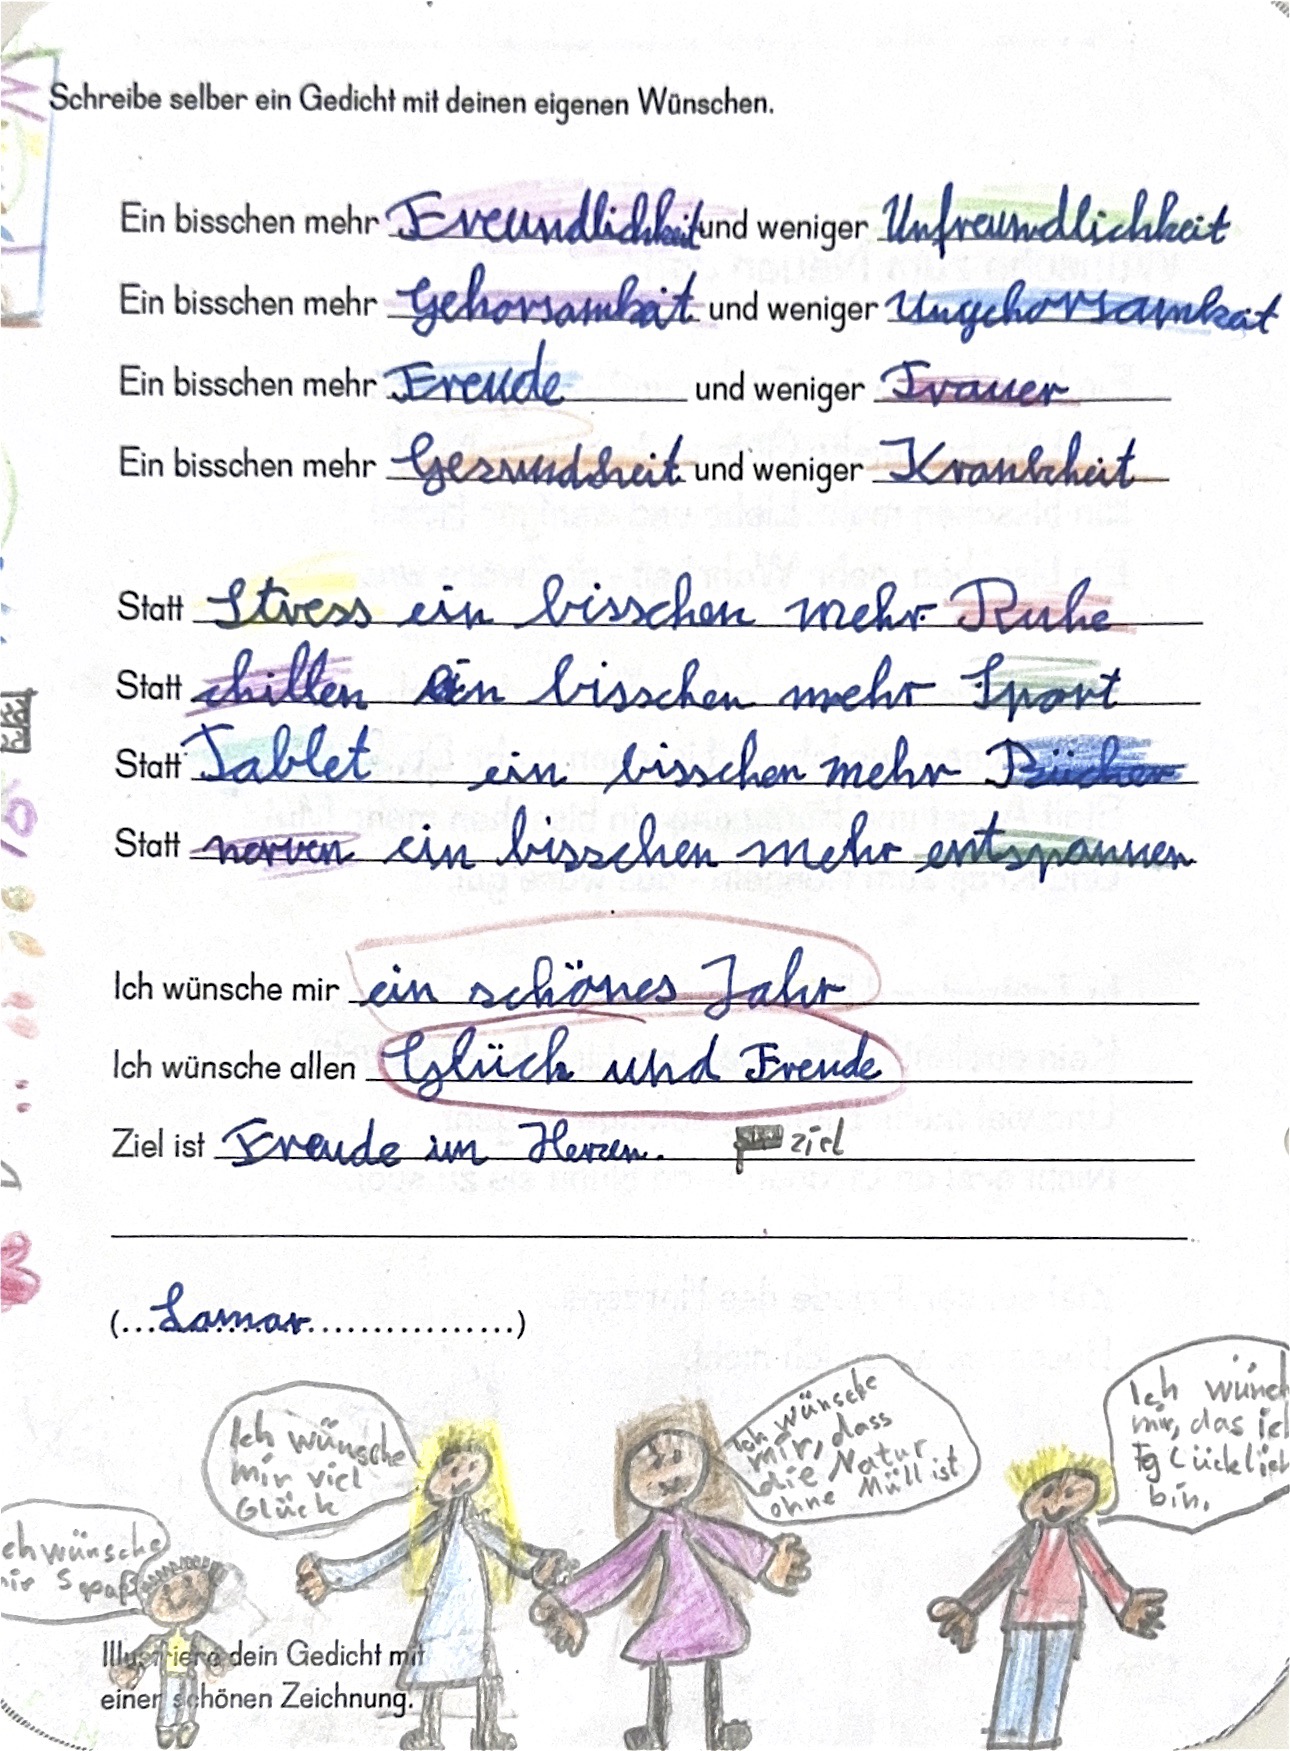 Schreibe selber ein Gedicht mit deinen eigenen Wünschen.
Ein bisschen mehr Freundlichkeit und weniger Unfreundlichkeit
Ein bisschen mehr Gehorsamkeit und weniger Ungehorsamkeit
Ein bisschen mehr Freude und weniger Trauer
Ein bisschen mehr Gesundheit und weniger Krankheit
Statt Stress ein bisschen mehr Ruhe
Statt chillen ein bisschen mehr Sport
Statt Tablet ein bisschen mehr Bücher
Statt nerven ein bisschen mehr entspannen
Ich wünsche mir ein schönes Jahr
Ich wünsche allen Glück und Freude
Ziel ist Freude im Herzen. ziel
(...Lamar..................)
Ich wünsche
mir viel
Glück
Ich wünsche
mir, dass
die Natur
ohne Müll ist
Ich wünch
mir, das ich
glücklich
bin.
ch wünsche
mir Spaß
Illustriere dein Gedicht mit
einer schönen Zeichnung.